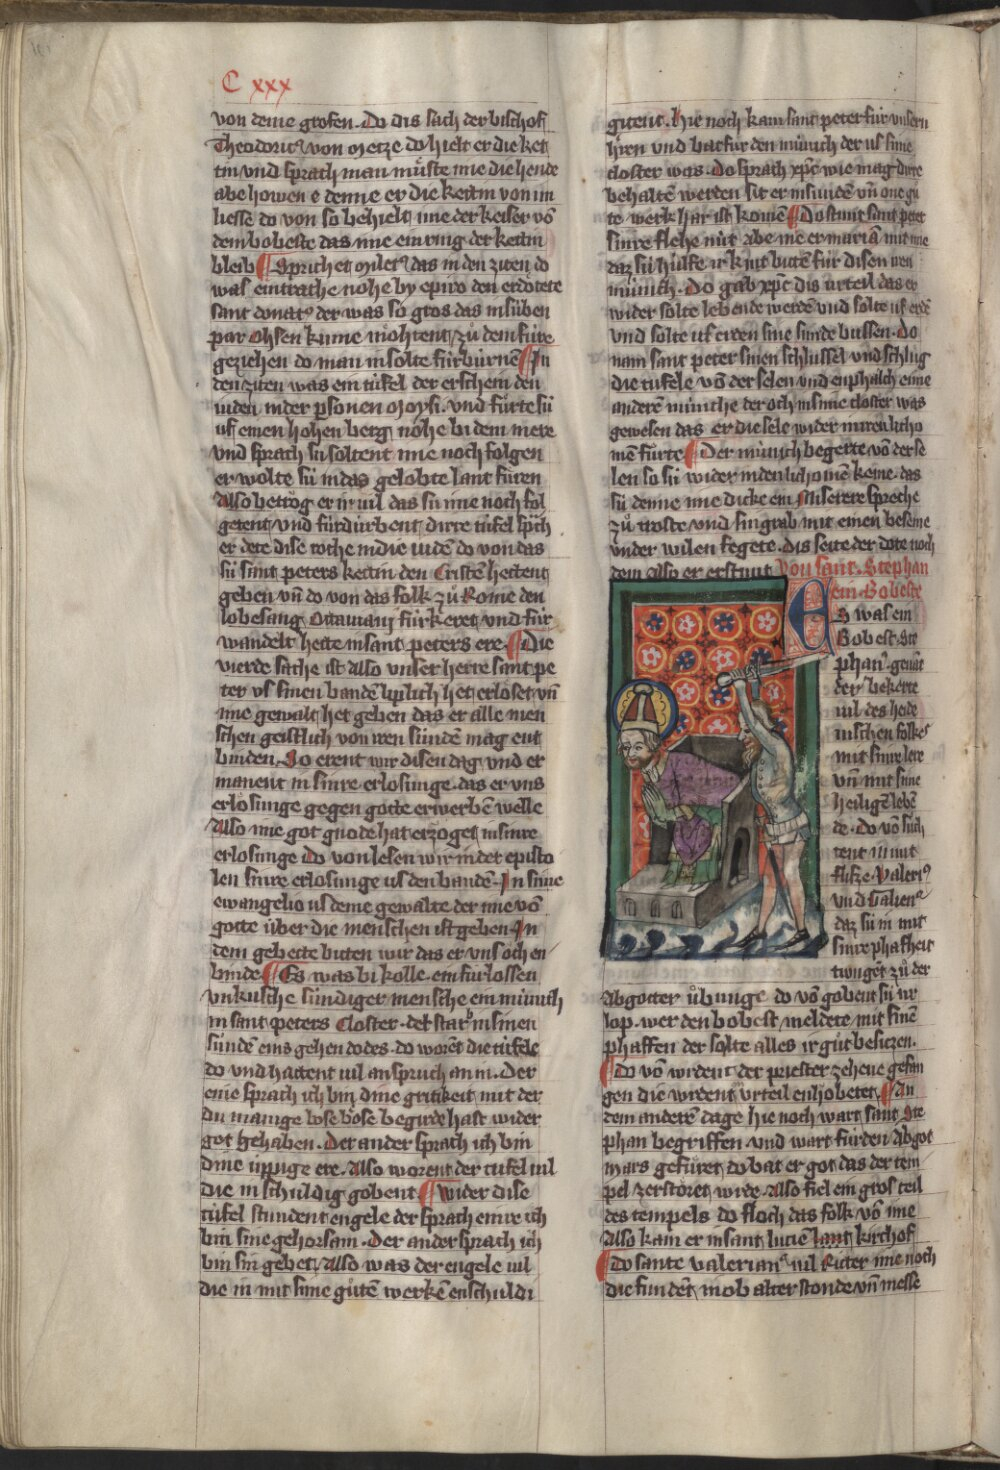 C xxx
von deme grofen. Do dis sach der bischof
Theodoricus von Metze do hielt er die ket
tin und sprach man muͤste ime die hende
abe howen e denne er die kettin von im
liesse do von so behielt ime der keiser vō
dem bobeste das ime ein ring der kettin
bleib ¶ Sprichet miletus das in den ziten do
was ein trache nohe by epiro den erdotete
sant donatus der was so gros das in süben
par Ohsen kume mohtent zuͦ dem füre
geziehen do man in solte fürbürnē ¶ In
den ziten was ein tüfel der erschein den
iuden in der psonen Moysi. vnd fuͤrte sü
uf einen hohen berg nohe bi dem mere
vnd sprach sü soltent ime noch folgen
er wolte sü in das gelobte lant füren
Also betrog er ir vil das sü ime noch fol
getent vnd fürdurbent dirre tüfel spch
er dete dise roche in die iudē do von das
sü sant peters kettin den Cristē hettent
geben vn̄ do von das folk zuͦ Rome den
lobesang Ottauiani fürkeret vnd für
wandelt hette in sant peters ere. ¶ Die
vierde sache ist also vnser herre sant pe
ter vs sinen bandē liplich het erloͤset vn̄
ime gewalt het geben das er alle men
schen geistlich von iren sündē mag ent
binden. So erent wir disen dag vnd er
manent in sinre erlosunge. das er vns
erloͤsunge gegen gotte erwerbē welle
Also ime got gnode hat erzoget in sinre
erlosunge Do von lesen wir in der episto
len sinre erlosunge us den bandē. In sime
ewangelio us deme gewalte der ime vō
gotte über die menschen ist geben. In
dem gebette bitten wir das er vns och en
binde. ¶ Es was bi kolle. ein fürlossen
vnkusche sündiger mensche ein münich
in sant peters Closter. der starb in sinen
sündē eins gehen dodes. do worēt die tüfele
do vnd hattent vil anspruch an in. Der
eine sprach ich bin dine gritikeit mit der
du manige bose bose begirde hast wider
got gehaben. Der ander sprach ich bin
dine üppige ere. Also worent der tüfel vil
die in schuldig gobent. ¶ Wider dise
tüfel stundent engele der sprach einre ich
bin sine gehorsam. Der ander sprach ich
bin sin gebet. Also was der engele vil
die in mit sime guͦtē werkē enschuldi
gitent. Hie noch kam sant peter für vnsern
hͤren vnd bat für den münich der us sime
closter was. Do sprach xp̄c wie mag dirre
behaltē werden sit er in sündē vn̄ one gu
te werk har ist komē ¶ Do stunt sant peter
sinre flehe nüt abe me er mariā mit ime
daz sü hülfe ir kint bittē für disen iren
münich. Do gab xp̄c dis urteil das er
wider solte lebende werdē vnd solte uf erdē
vnd solte uf erden sine sünde bussen. Do
nam sant peter sinen schlüssel vnd schlug
die tüfele vō der selen vnd enphalch eime
anderē müniche der och in sime closter was
gewesen das er die sele wider in iren licho
mē fürte ¶ Der münich begerte vō der se
len so sü wider in den lichomē keme. das
sü denne ime dicke ein Miserere spreche
zuͦ troste vnd sin grab mit einen beseme
vnder wilen fegete. dis seite der dote noch
dem also er erstunt Von sant. Stephan
ein. Bobeste
Es was ein
Bobest. Ste
phanus. genāt
der bekerte
vil des heide
nischen folkes
mit sinre lere
vn̄ mit sime
heiligē lebē
de. do vō such
tent in mit
flisze. Valerius
vnd Galienus
daz sü in mit
sinre phafheit
twingēt zuͦ der
Abgotter uͤbunge do vō gobent sü vr
lop. wer den bobest meldete mit sinē
phaffen der solte alles ir guͦt besiczen.
¶ Do vō wrdent der priester zehene gefan
gen die wrdent vrteil enhobetet. ¶ An
dem anderē dage hie noch wart sant Ste
phan begriffen vnd wart für den Abgot
mars gefüret do bat er got das der tem
pel zerstoret wrde. Also fiel ein gros teil
des tempels do floch das folk vō ime
Also kam er in sant lucien lant kirchof
¶ Do sante Valerianus vil Ritter ime noch
die fundēt in ob alter stonde vn̄ messe